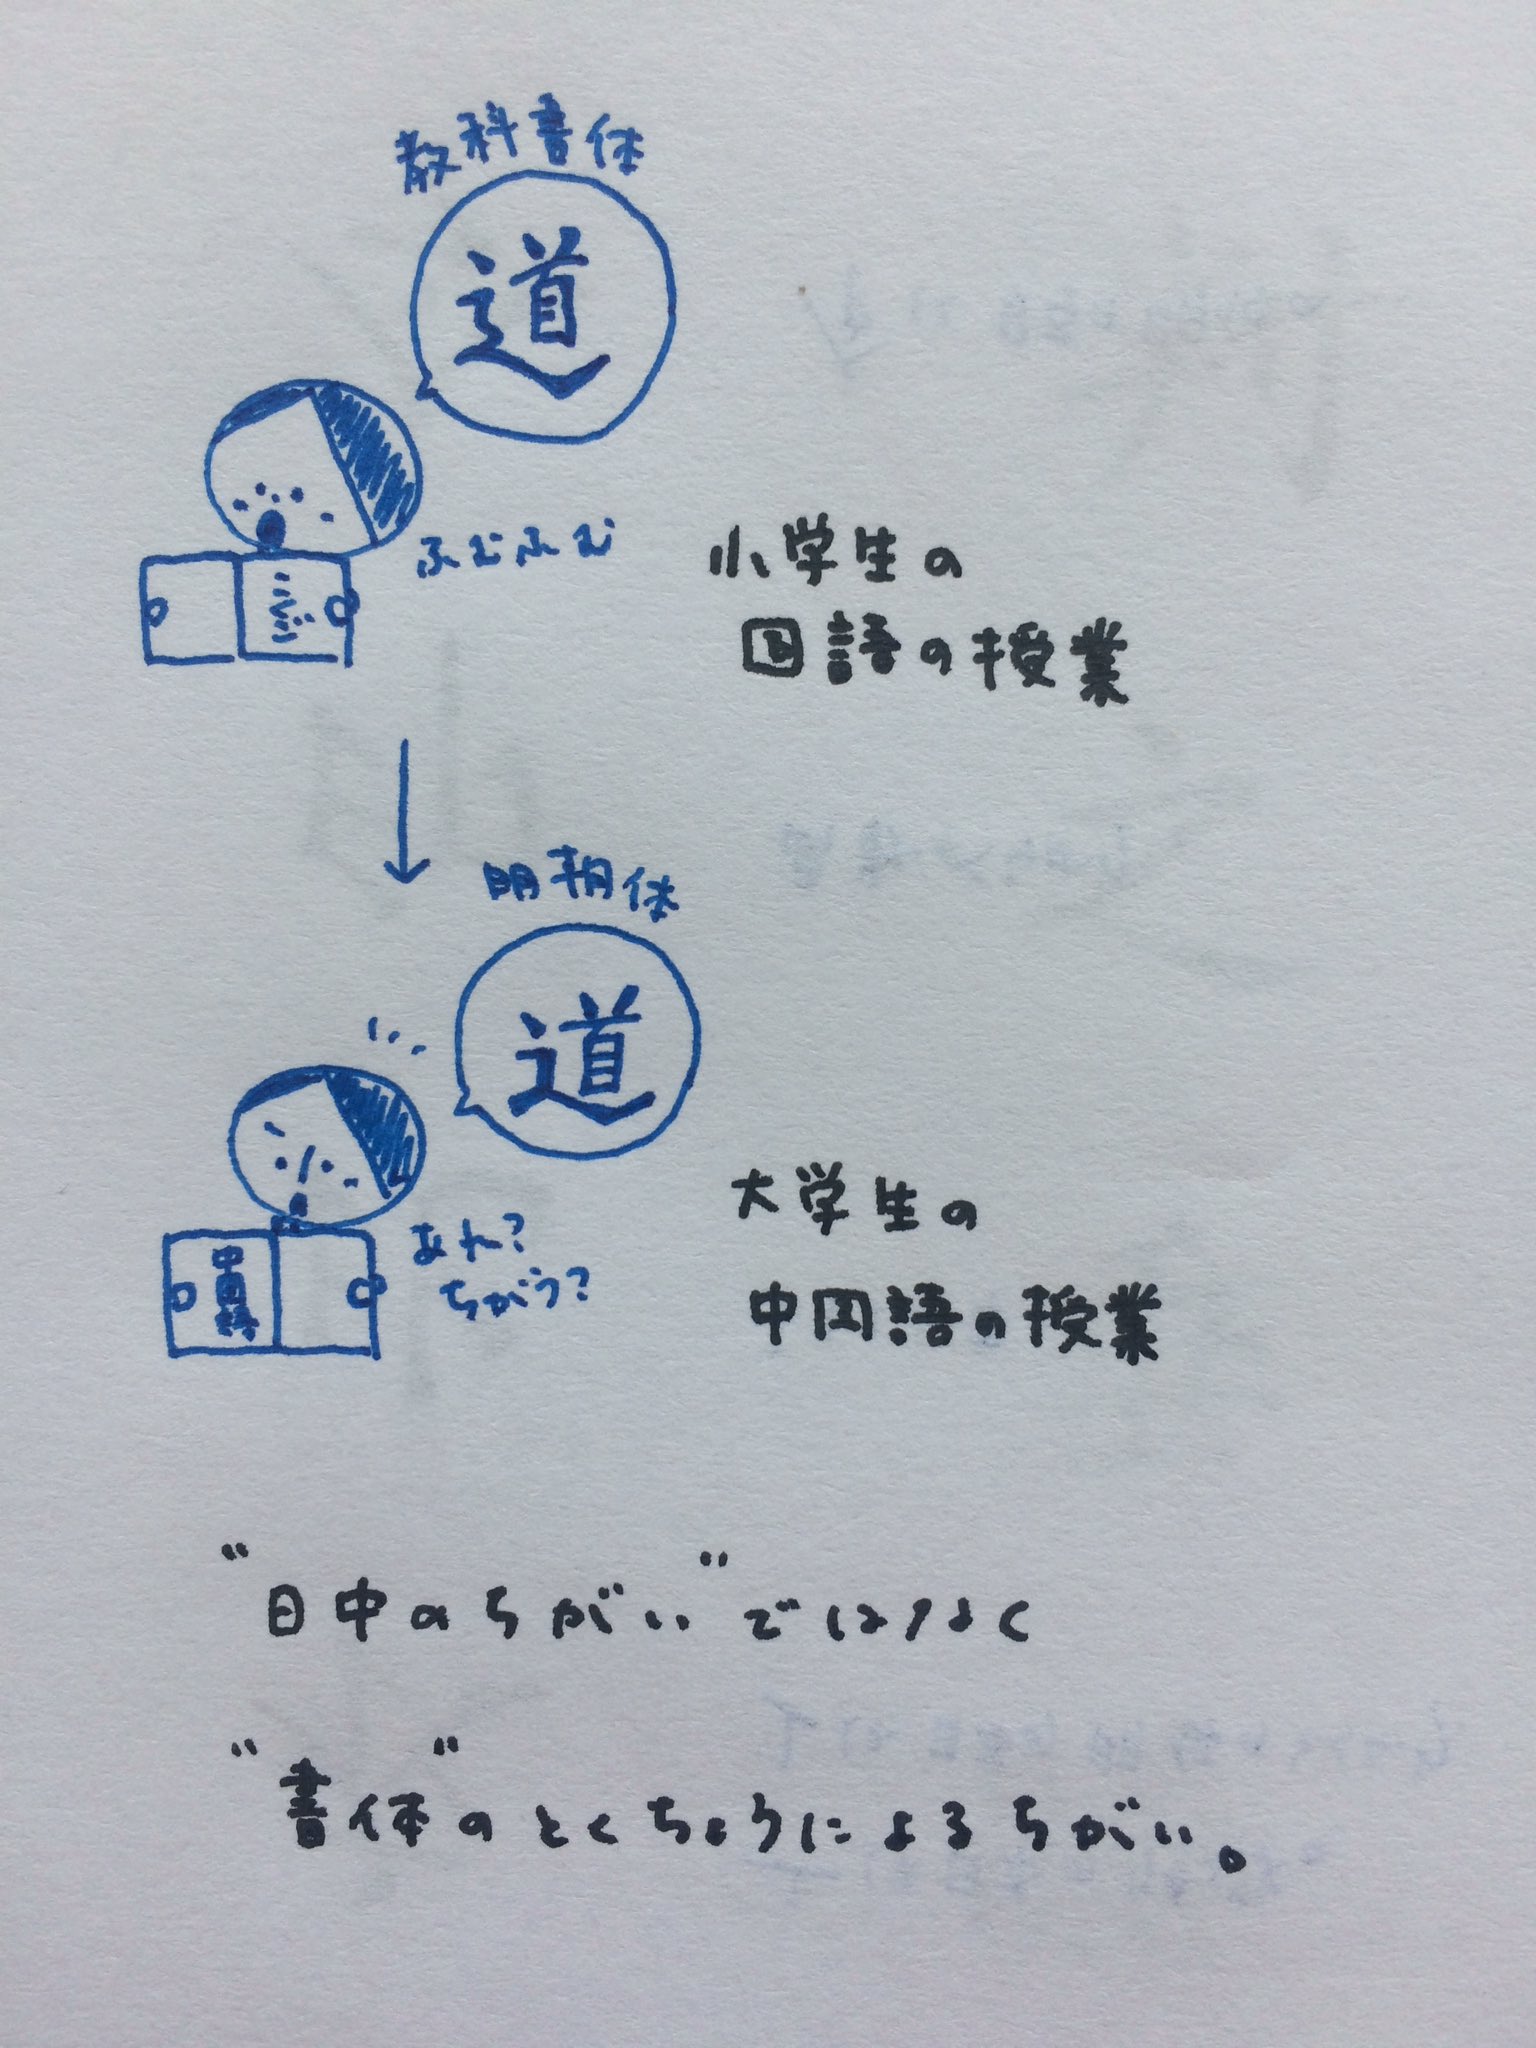 教科書体
道
ふむふむ
こくご
小学生の
国語の授業
明朝体
道
あれ?
ちがう?
中国語
大学生の
中国語の授業
"日中のちがい"ではなく
"書体"のとくちょうによるちがい。